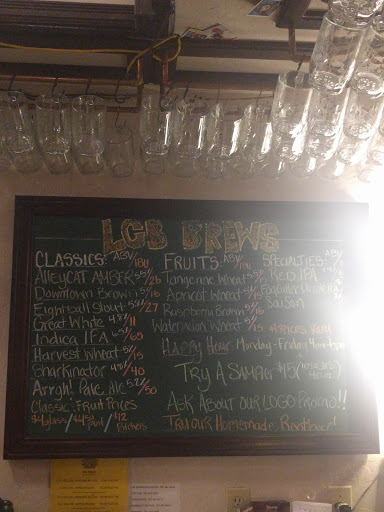 LCB BREWS
CLASSICS: ABV/IBU
ALLEYCAT AMBER 5.5/26
Downtown Brown 5/15
Eightball Stout 5.8/27
Great White 4.8/11
Indica IPA 6.5/65
Harvest Wheat 5/15
Sharkinator 4.8/40
Arrgh! Pale Ale 5.2/50
Classic: Fruit Prices
$4 glass/$4.50 pint/$12 Pitchers
FRUITS: ABV/IBU
Tangerine Wheat
Apricot Wheat
Raspberry Brown 5/16
Watermelon Wheat 5/15
SPECIALTIES:
RED IPA
Saison
*PRICES VARY
Happy Hour: Monday-Friday
TRY A SAMPLER $15
ASK ABOUT OUR LOGO PROMO!!
TRY OUR Homemade Rootbeer!